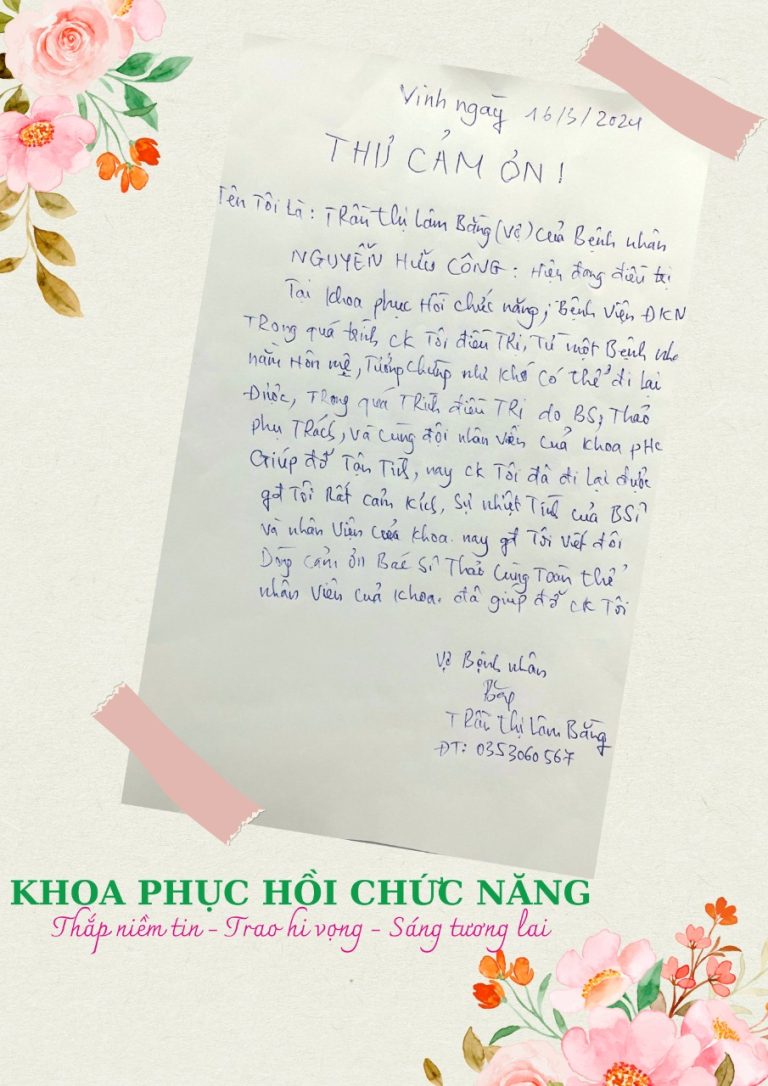 Vinh ngày 16/3/2024
THƯ CẢM ƠN!
Tên Tôi Là: TRần thị Lâm Bằng (vợ) của Bệnh nhân
NGUYỄN HỮU CÔNG: Hiện đang điều trị
Tại Khoa phục Hồi chức năng, Bệnh Viện ĐKN
TRong quá trình ck Tôi điều TRị, Từ một Bệnh nhâ
nằm Hôn mê, Tưởng chừng như Khó có thể đi lại
Được, TRong quá TRình điều TRị do BS, Thảo
phụ TRách, và cùng đội nhân viên của Khoa pHc
Giúp đỡ Tận Tình, nay ck Tôi đã đi lại được
gđ Tôi Rất cảm kích, sự nhiệt Tình của BSĩ
và nhân Viên của Khoa. nay gđ Tôi viết đôi
Dòng cảm ơn Bác Sĩ Thảo Cùng Toàn thể
nhân Viên cuả Khoa. đã giúp đỡ ck Tôi
Vợ Bệnh nhân
TRần thị Lâm Bằng
ĐT: 0353060567
KHOA PHỤC HỒI CHỨC NĂNG
Thắp niềm tin - Trao hi vọng - Sáng tương lai